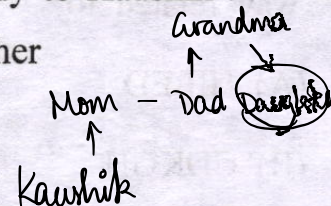 to
her
Grandma
Mom - Dad Daughter
Kaushik